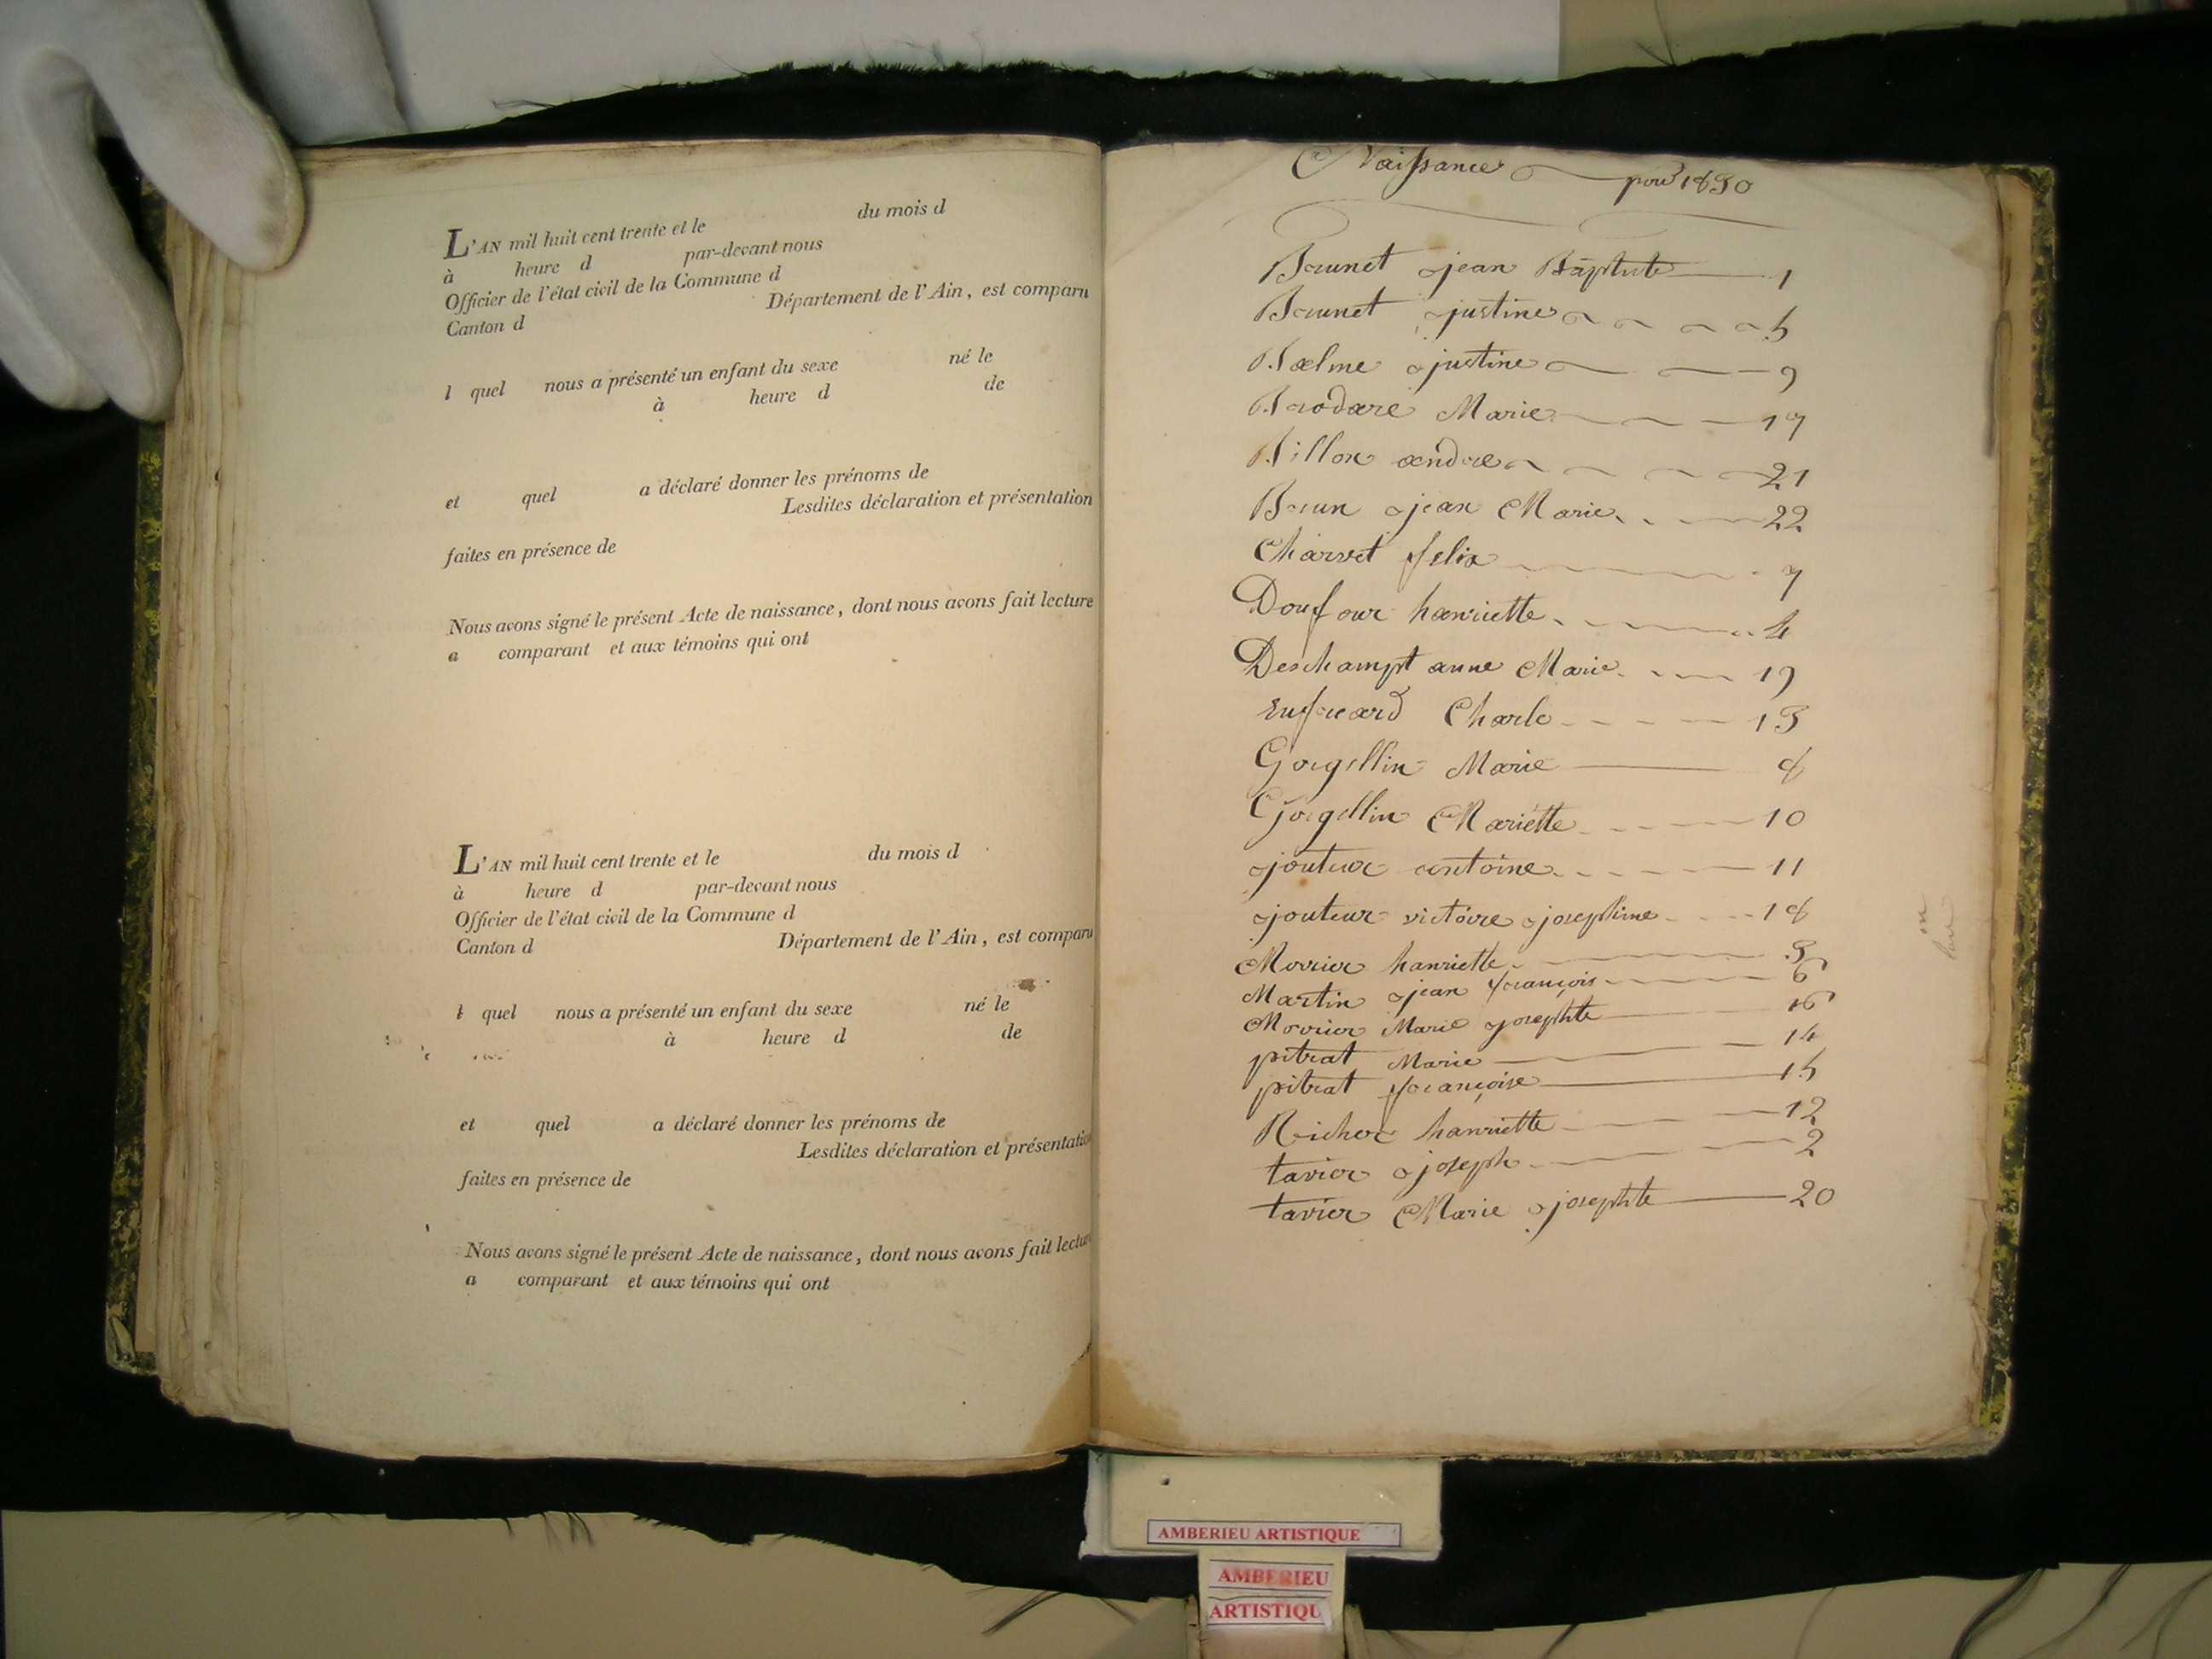 L'AN mil huit cent trente et le du mois d
à heure d par-devant nous
Officier de l'état civil de la Commune d
Canton d Département de l'Ain, est comparu
l quel nous a présenté un enfant du sexe né le
à heure d de
et quel a déclaré donner les prénoms de
Lesdites déclaration et présentation
faites en présence de
Nous avons signé le présent Acte de naissance, dont nous avons fait lecture
a comparant et aux témoins qui ont
L'AN mil huit cent trente et le du mois d
à heure d par-devant nous
Officier de l'état civil de la Commune d
Canton d Département de l'Ain, est comparu
l quel nous a présenté un enfant du sexe né le
à heure d de
et quel a déclaré donner les prénoms de
Lesdites déclaration et présentatio
faites en présence de
Nous avons signé le présent Acte de naissance, dont nous avons fait lectur
a comparant et aux témoins qui ont
Naissance pour 1830
Brunet jean Baptiste 1
Brunet justine 5
Balme justine 9
Brodare Marie 17
Billon andre 21
Brun jean Marie 22
Charvet felix 7
Doufour hanriette 4
Deschampt anne Marie 19
Charle 13
Gorgellin Marie 8
Gorgellin Mariette 10
jouteur antoine 11
jouteur victoire josephine 18
Morrier hanriette 3
Martin jean françois 6
Morrier Marie josephte 16
pitrat Marie 14
pitrat françoise 15
Richer hanriette 12
tavier joseph 2
tavier Marie josephte 20
AMBERIEU ARTISTIQUE
AMBERIEU
ARTISTIQU